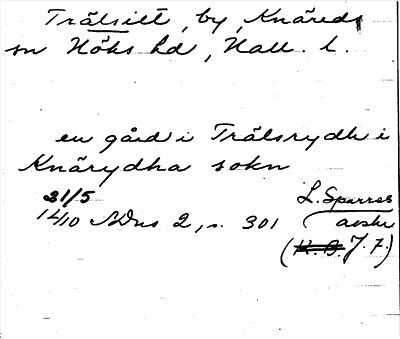 Trälsilt, by, Knäreds
sn Höks hd, Hall. l.
en gård i Trälsrydh i
Knärydha sokn
31/5
1410 SDns 2, s. 301
L. Sparres
avskr
(K. B. J. F.)